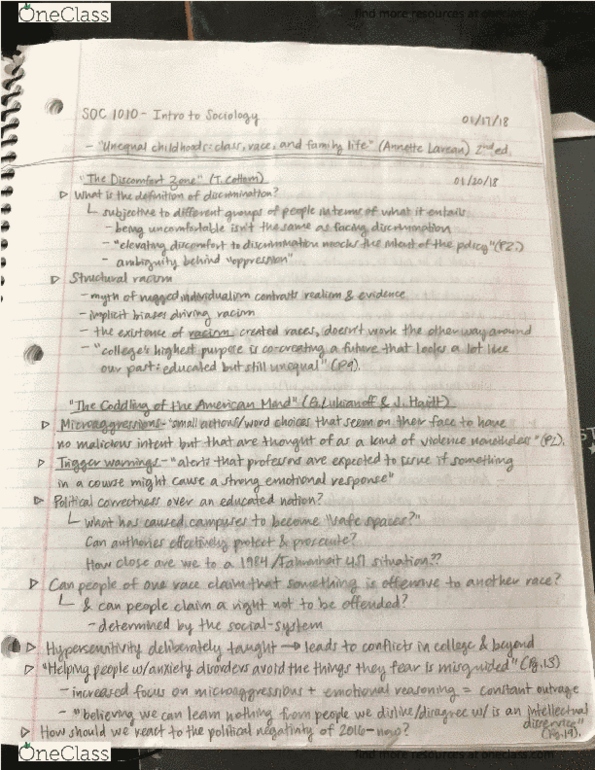 OneClass
find more resources at oneclass.com
SOC 1010 - Intro to Sociology 01/17/18
- "Unequal childhoods: class, race, and family life" (Annette Lareau) 2nd ed.
"The Discomfort Zone" (T. Cottom) 01/20/18
▷ What is the definition of discrimination?
└ subjective to different groups of people in terms of what it entails
- being uncomfortable isn't the same as facing discrimination
- "elevating discomfort to discrimination mocks the intent of the policy" (P2.)
- ambiguity behind "oppression"
▷ Structural racism
- myth of rugged individualism contrasts realism & evidence
- implicit biases driving racism
- the existence of racism created races, doesn't work the other way around
- "college's highest purpose is co-creating a future that looks a lot like
our past: educated but still unequal" (P9).
"The Coddling of the American Mind" (G. Lukianoff & J. Haidt)
▷ Microaggressions - "small actions/word choices that seem on their face to have
no malicious intent but that are thought of as a kind of violence nonetheless" (P2).
▷ Trigger warnings - "alerts that professors are expected to issue if something
in a course might cause a strong emotional response"
▷ Political correctness over an educated nation?
└ What has caused campuses to become "safe spaces?"
Can authories effectively protect & prosecute?
How close are we to a 1984/Fahrenheit 451 situation??
▷ Can people of one race claim that something is offensive to another race?
└ & can people claim a right not to be offended?
- determined by the social-system
▷ Hypersensitivity deliberately taught → leads to conflicts in college & beyond
▷ "Helping people w/anxiety disorders avoid the things they fear is misguided" (Pg.13)
- increased focus on microaggressions + emotional reasoning = constant outrage
- "believing we can learn nothing from people we dislike/disagree w/ is an intellectual
disservice" (Pg.19).
▷ How should we react to the political negatinity of 2016-now?
OneClass
find more resources at oneclass.com